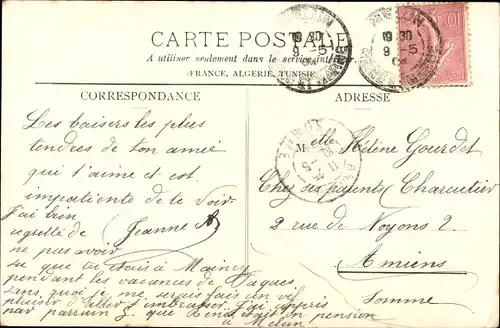 CARTE POSTALE
A utiliser seulement dans le service intérieur.
(FRANCE, ALGERIE, TUNISIE)
CORRESPONDANCE
Les baisers les plus
tendres de ton amie
qui t'aime et est
impatiente de te voir
Jeanne
J'ai bien
regretté de
ne pas avoir
su que tu étais à Maincy
pendant les vacances de Pâques.
Sans quoi je me serais fait un vif
plaisir d'aller t'embrasser. J'ai appris
par parrain que René était en pension
à Melun
ADRESSE
Melle Hélène Gourdet
Chez ses parents Charcutier
2 rue de Noyons 2
Amiens
Somme
MELUN
19 30
9 -5
MELUN
19 30
9 -5
10